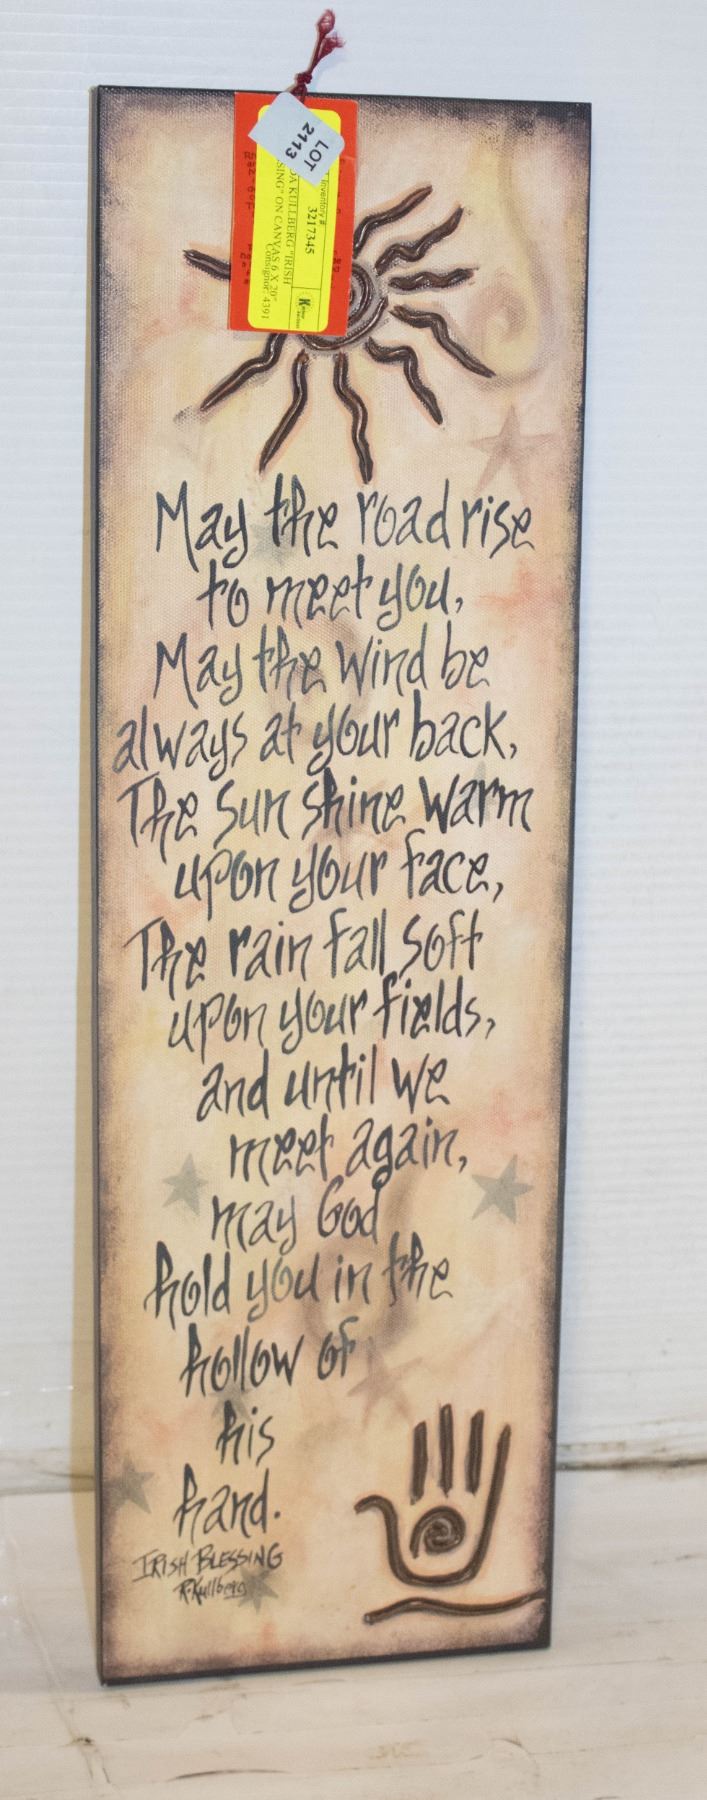 LOT
2113
Inventory #
3217345
DA KULLBERG "IRISH
SING" ON CANVAS 6 X 20"
Consignor: 4391
May the road rise
to meet you,
May the wind be
always at your back,
The sun shine warm
upon your face,
The rain fall soft
upon your fields,
and until we
meet again,
may God
hold you in the
hollow of
his
hand.
IRISH BLESSING
R. Kullberg